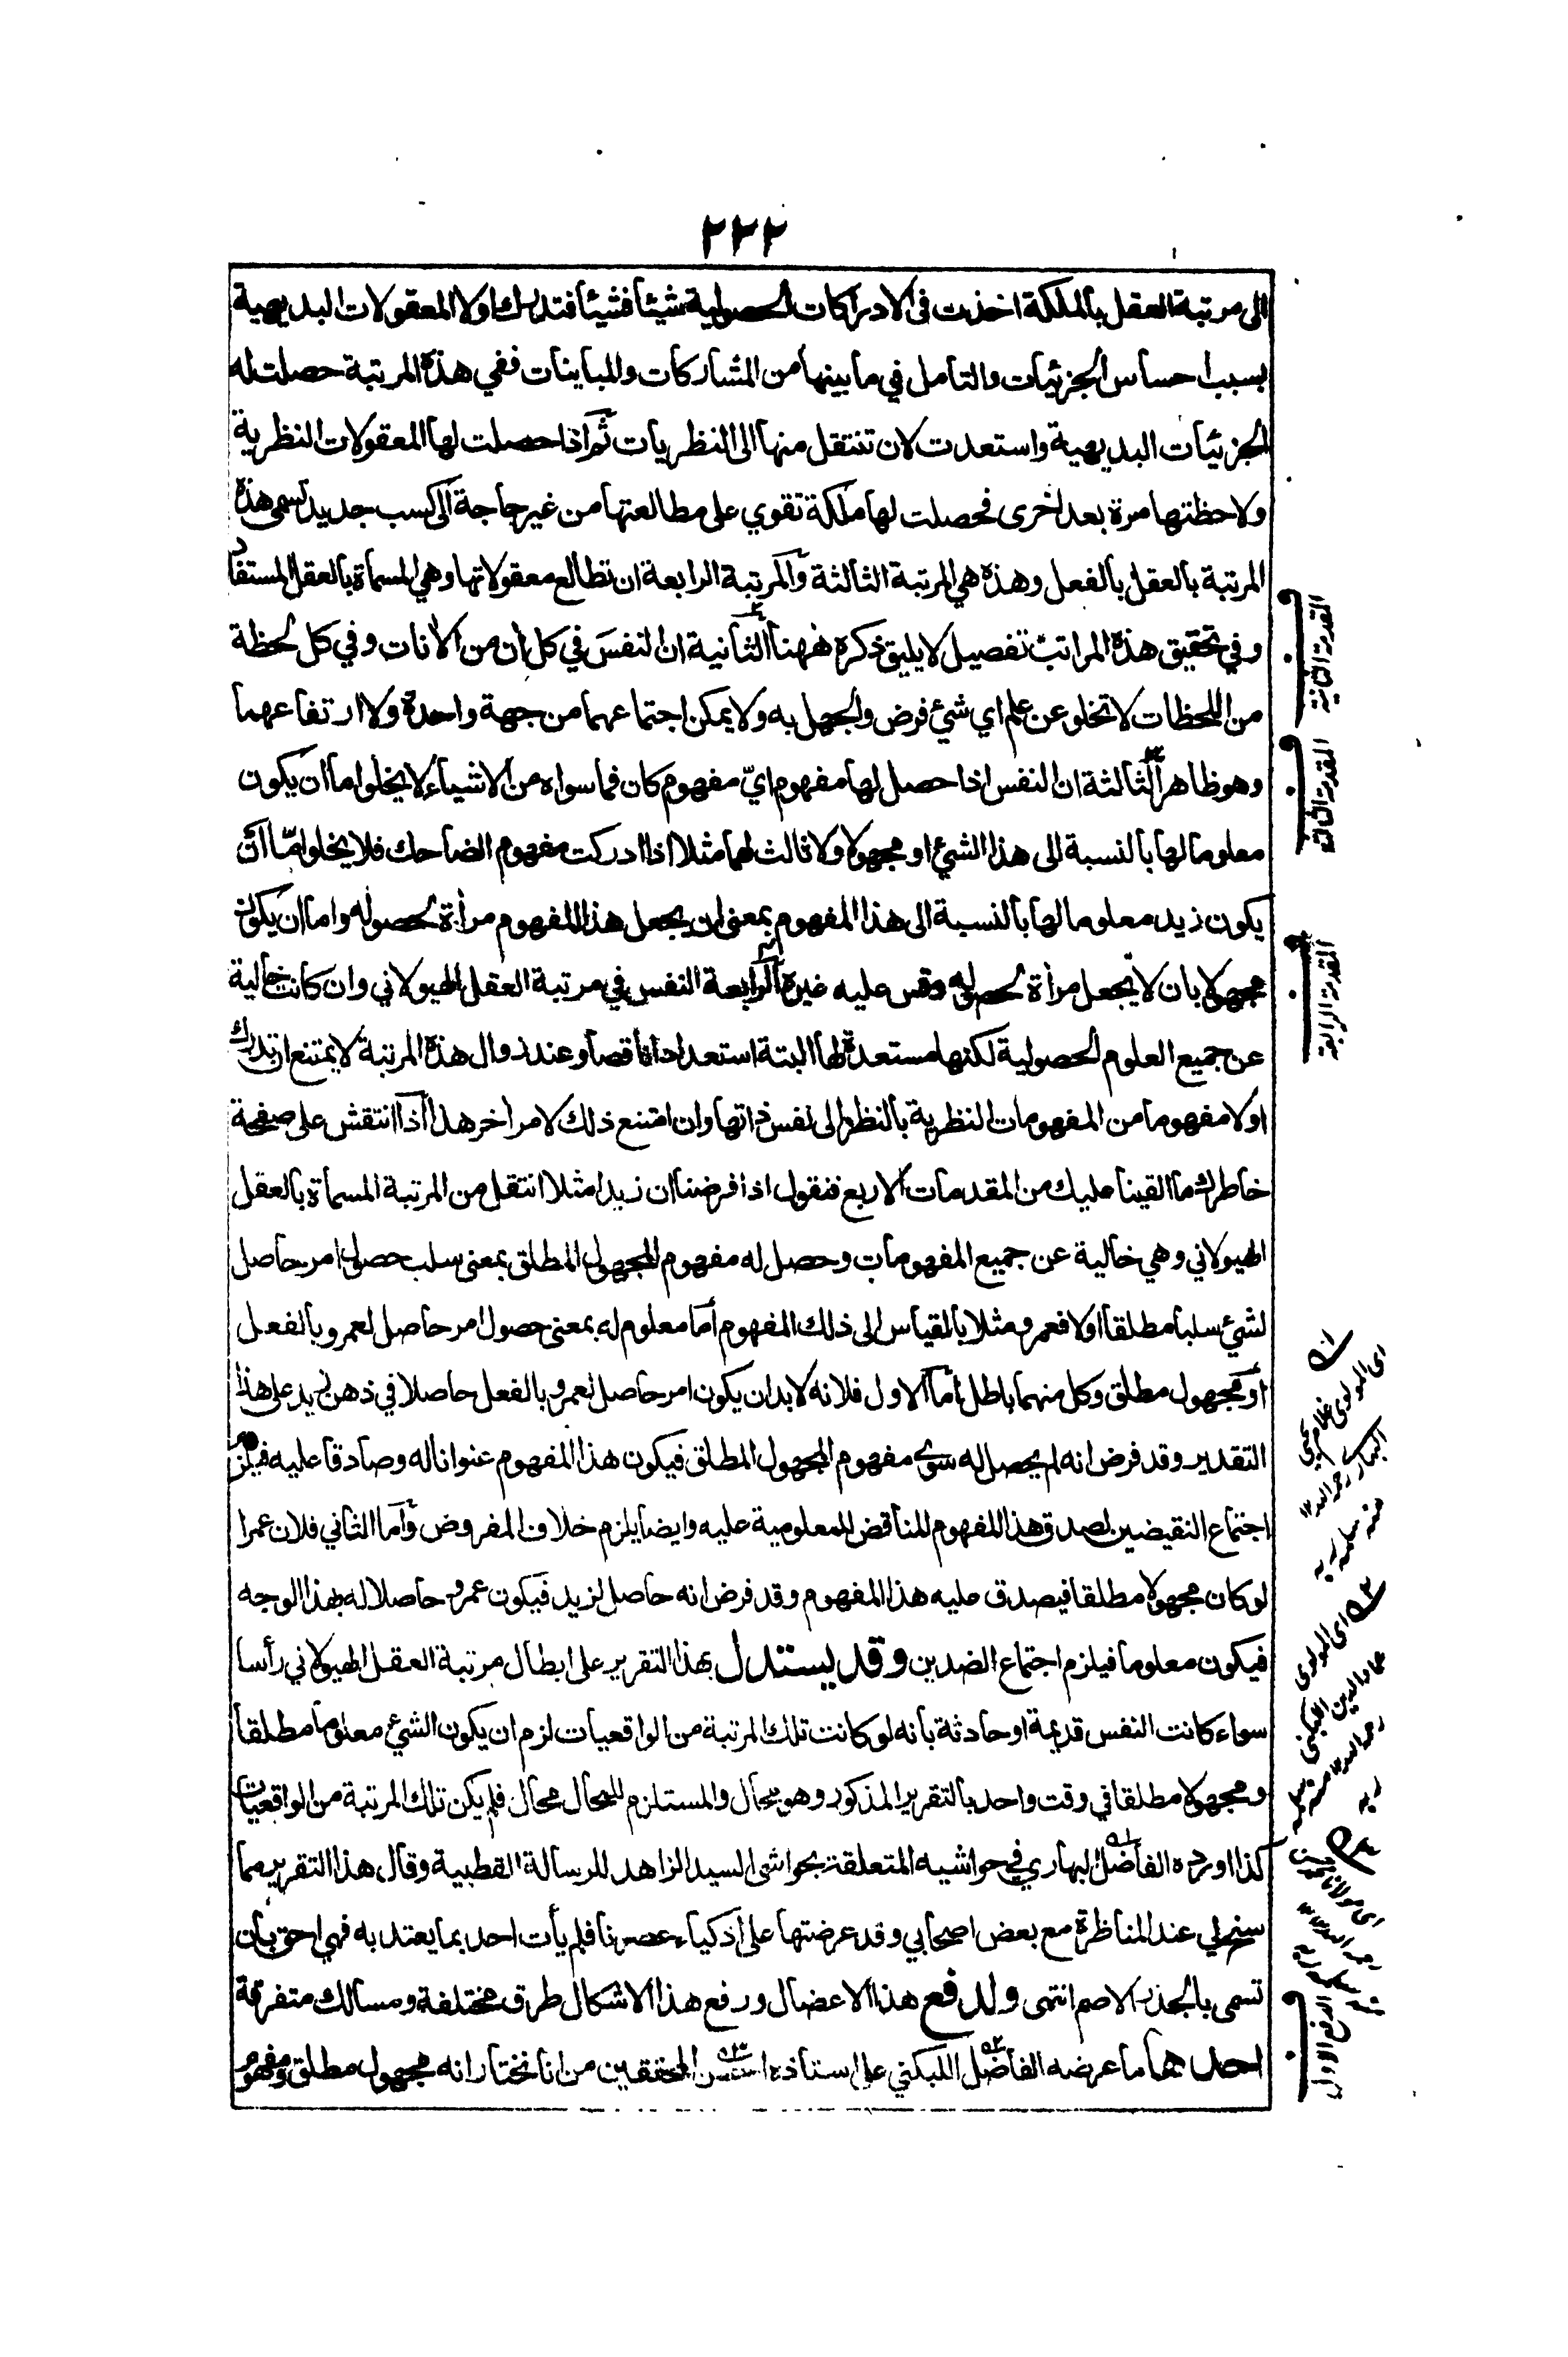 ٢٢٢
الى مرتبة العقل بالملكة اخذت في الادراكات الحصولية شيئا فشيئا فتدرك اولا المعقولات البديهية
بسبب احساس الجزئيات والتامل في ما بينها من المشاركات والمباينات ففي هذه المرتبة حصلت له
الجزئيات البديهية واستعدت لان تنتقل منها الى النظريات ثم اذا حصلت لها المعقولات النظرية
ولاحظتها مرة بعد اخرى فحصلت لها ملكة تقوي على مطالعتها من غير حاجة الى كسب جديد تسمى هذه
المرتبة بالعقل بالفعل وهذه هي المرتبة الثالثة والمرتبة الرابعة ان تطالع معقولاتها وهي المسماة بالعقل المستفاد
وفي تحقيق هذه المراتب تفصيل لا يليق ذكره ههنا الثانية ان النفس في كل أن من الأنات وفي كل لحظة
من اللحظات لا تخلو عن علم اي شيئ فرض والجهل به ولا يمكن اجتماعهما من جهة واحدة ولا ارتفاعهما
وهو ظاهر الثالثة ان النفس اذا حصل لها مفهوم ايّ مفهوم كان فما سواه من الاشياء لا يخلوا ما ان يكون
معلوما لها بالنسبة الى هذا الشيئ او مجهولا ولا ثالث لهما مثلا اذا ادركت مفهوم الضاحك فلا يخلوامّا ان
يكون زيد معلوما لها بالنسبة الى هذا المفهوم بمعنى ان يجعل هذا المفهوم مرأة لحصوله واما ان يكون
مجهولا بان لا يجعل مرأة لحصوله وقس عليه غيره الرابعة النفس في مرتبة العقل الهيولاني وان كانت خالية
عن جميع العلوم الحصولية لكنها مستعدة لها البتة استعدادا ناقصا وعند زوال هذه المرتبة لا يمتنع ان تدرك
اولا مفهوما من المفهومات النظرية بالنظر الى نفس ذاتها وان امتنع ذلك لامر أخر هذا اذا انتقش على صفحة
خاطرك ما القينا عليك من المقدمات الاربع فنقول اذا فرضنا ان زيدا مثلا انتقل من المرتبة المسماة بالعقل
الهيولاني وهي خالية عن جميع المفهومات وحصل له مفهوم المجهول المطلق بمعنى سلب حصول امر حاصل
لشيئ سلبا مطلقا اولا فعمرو مثلا بالمقياس الى ذلك المفهوم أما معلوم له بمعنى حصول امر حاصل لعمرو بالفعل
أو مجهول مطلق وكل منهما باطل أما الاول فلانه لا بد ان يكون امر حاصل لعمرو بالفعل حاصلا في ذهن زيد على هذا
التقدير وقد فرض انه لم يحصل له سوى مفهوم المجهول المطلق فيكون هذا المفهوم عنوانا له وصادقا عليه فيلزم
اجتماع النقيضين لصدق هذا المفهوم المناقض للمعلومية عليه وايضا يلزم خلاف المفروض وأما الثاني فلان عمرا
لو كان مجهولا مطلقا فيصدق عليه هذا المفهوم وقد فرض انه حاصل لزيد فيكون عمرو حاصلا له بهذا الوجه
فيكون معلوما فيلزم اجتماع الضدين وقد يستدل بهذا التقرير على ابطال مرتبة العقل الهيولاني رأسا
سواء كانت النفس قديمة او حادثة بأنه لو كانت تلك المرتبة من الواقعيات لزم ان يكون الشيئ معلوما مطلقا
ومجهولا مطلقا في وقت واحد بالتقرير المذكور وهو محال والمستلزم للمحال محال فلم يكن تلك المرتبة من الواقعيات
كذا اورده الفاضل البهاري في حواشيه المتعلقة بحواشي السيد الزاهد للرسالة القطبية وقال هذا التقرير مما
سنح لي عند المناظرة مع بعض اصحابي وقد عرضتها على أذكياء عصرنا فلم يأت احد بما يعتد به فهي احق بأن
تسمى بالجذر الاصم انتهى ولدفع هذا الاعضال ورفع هذا الاشكال طرق مختلفة ومسالك متفرقة
احدها ما عرضه الفاضل اللبكني على استاذه المحققين من انا نختار انه مجهول مطلق ومفهوم
المقدمة الثانية
المقدمة الثالثة
المقدمة الرابعة
اى المولوى غلام يحيى
البهارى رحمه الله ١٢
منه سلمه ربه
اى المولوى
عماد الدين اللبكنى
رحمه الله ١٢ منه سلمه
ربه
اى مولانا محمد حسن
رحمه الله ١٢
منه سلمه ربه
الدفع الاول